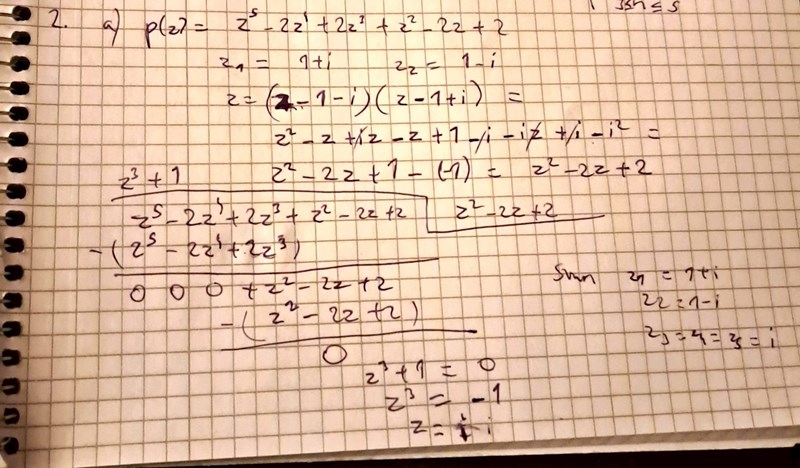 2. a) p(z) = z⁵ - 2z⁴ + 2z³ + z² - 2z + 2
z₁ = 1+i z₂ = 1-i
z = (z-1-i)(z-1+i) =
z² - z + iz - z + 1 - i - iz + i - i² =
z² - 2z + 1 - (-1) = z² - 2z + 2
z³ + 1
z⁵ - 2z⁴ + 2z³ + z² - 2z + 2 z² - 2z + 2
-(z⁵ - 2z⁴ + 2z³)
0 0 0 + z² - 2z + 2
-(z² - 2z + 2)
0
z³ + 1 = 0
z³ = -1
z = i
z₁ = 1+i
z₂ = 1-i
z₃ = z₄ = z₅ = i